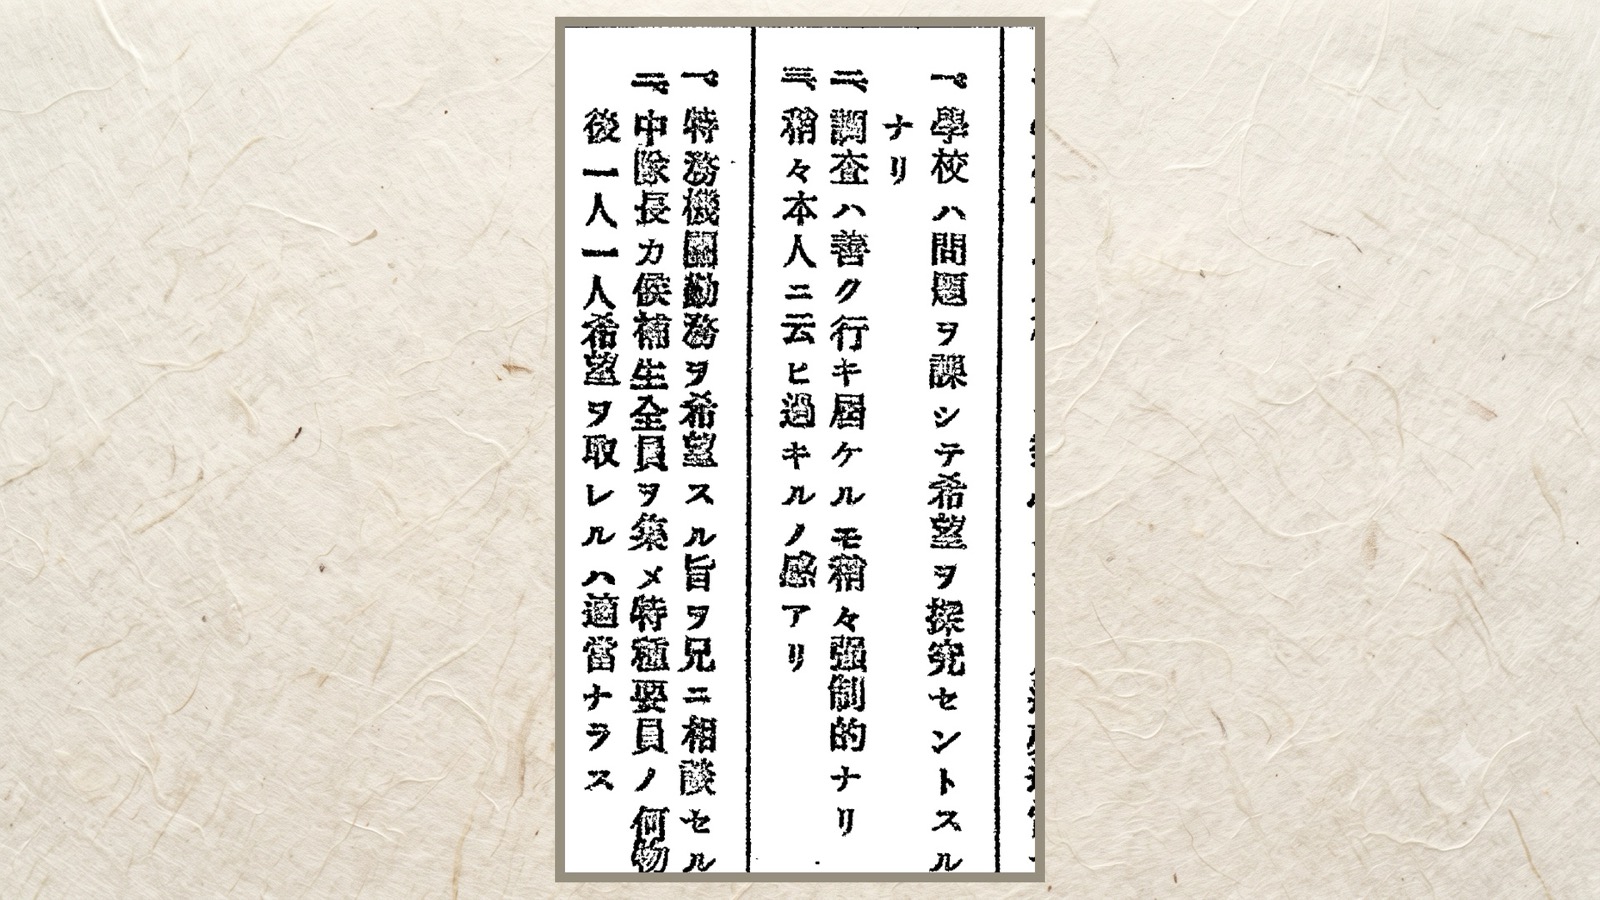 一、學校ハ問題ヲ課シテ希望ヲ探究セントスル
ナリ
二、調査ハ善ク行キ届ケルモ稍々强制的ナリ
三、稍々本人ニ云ヒ過キルノ感アリ
一、特務機關勤務ヲ希望スル旨ヲ兄ニ相談セル
二、中隊長カ候補生全員ヲ集メ特種要員ノ何物
後一人一人希望ヲ取レルハ適當ナラス